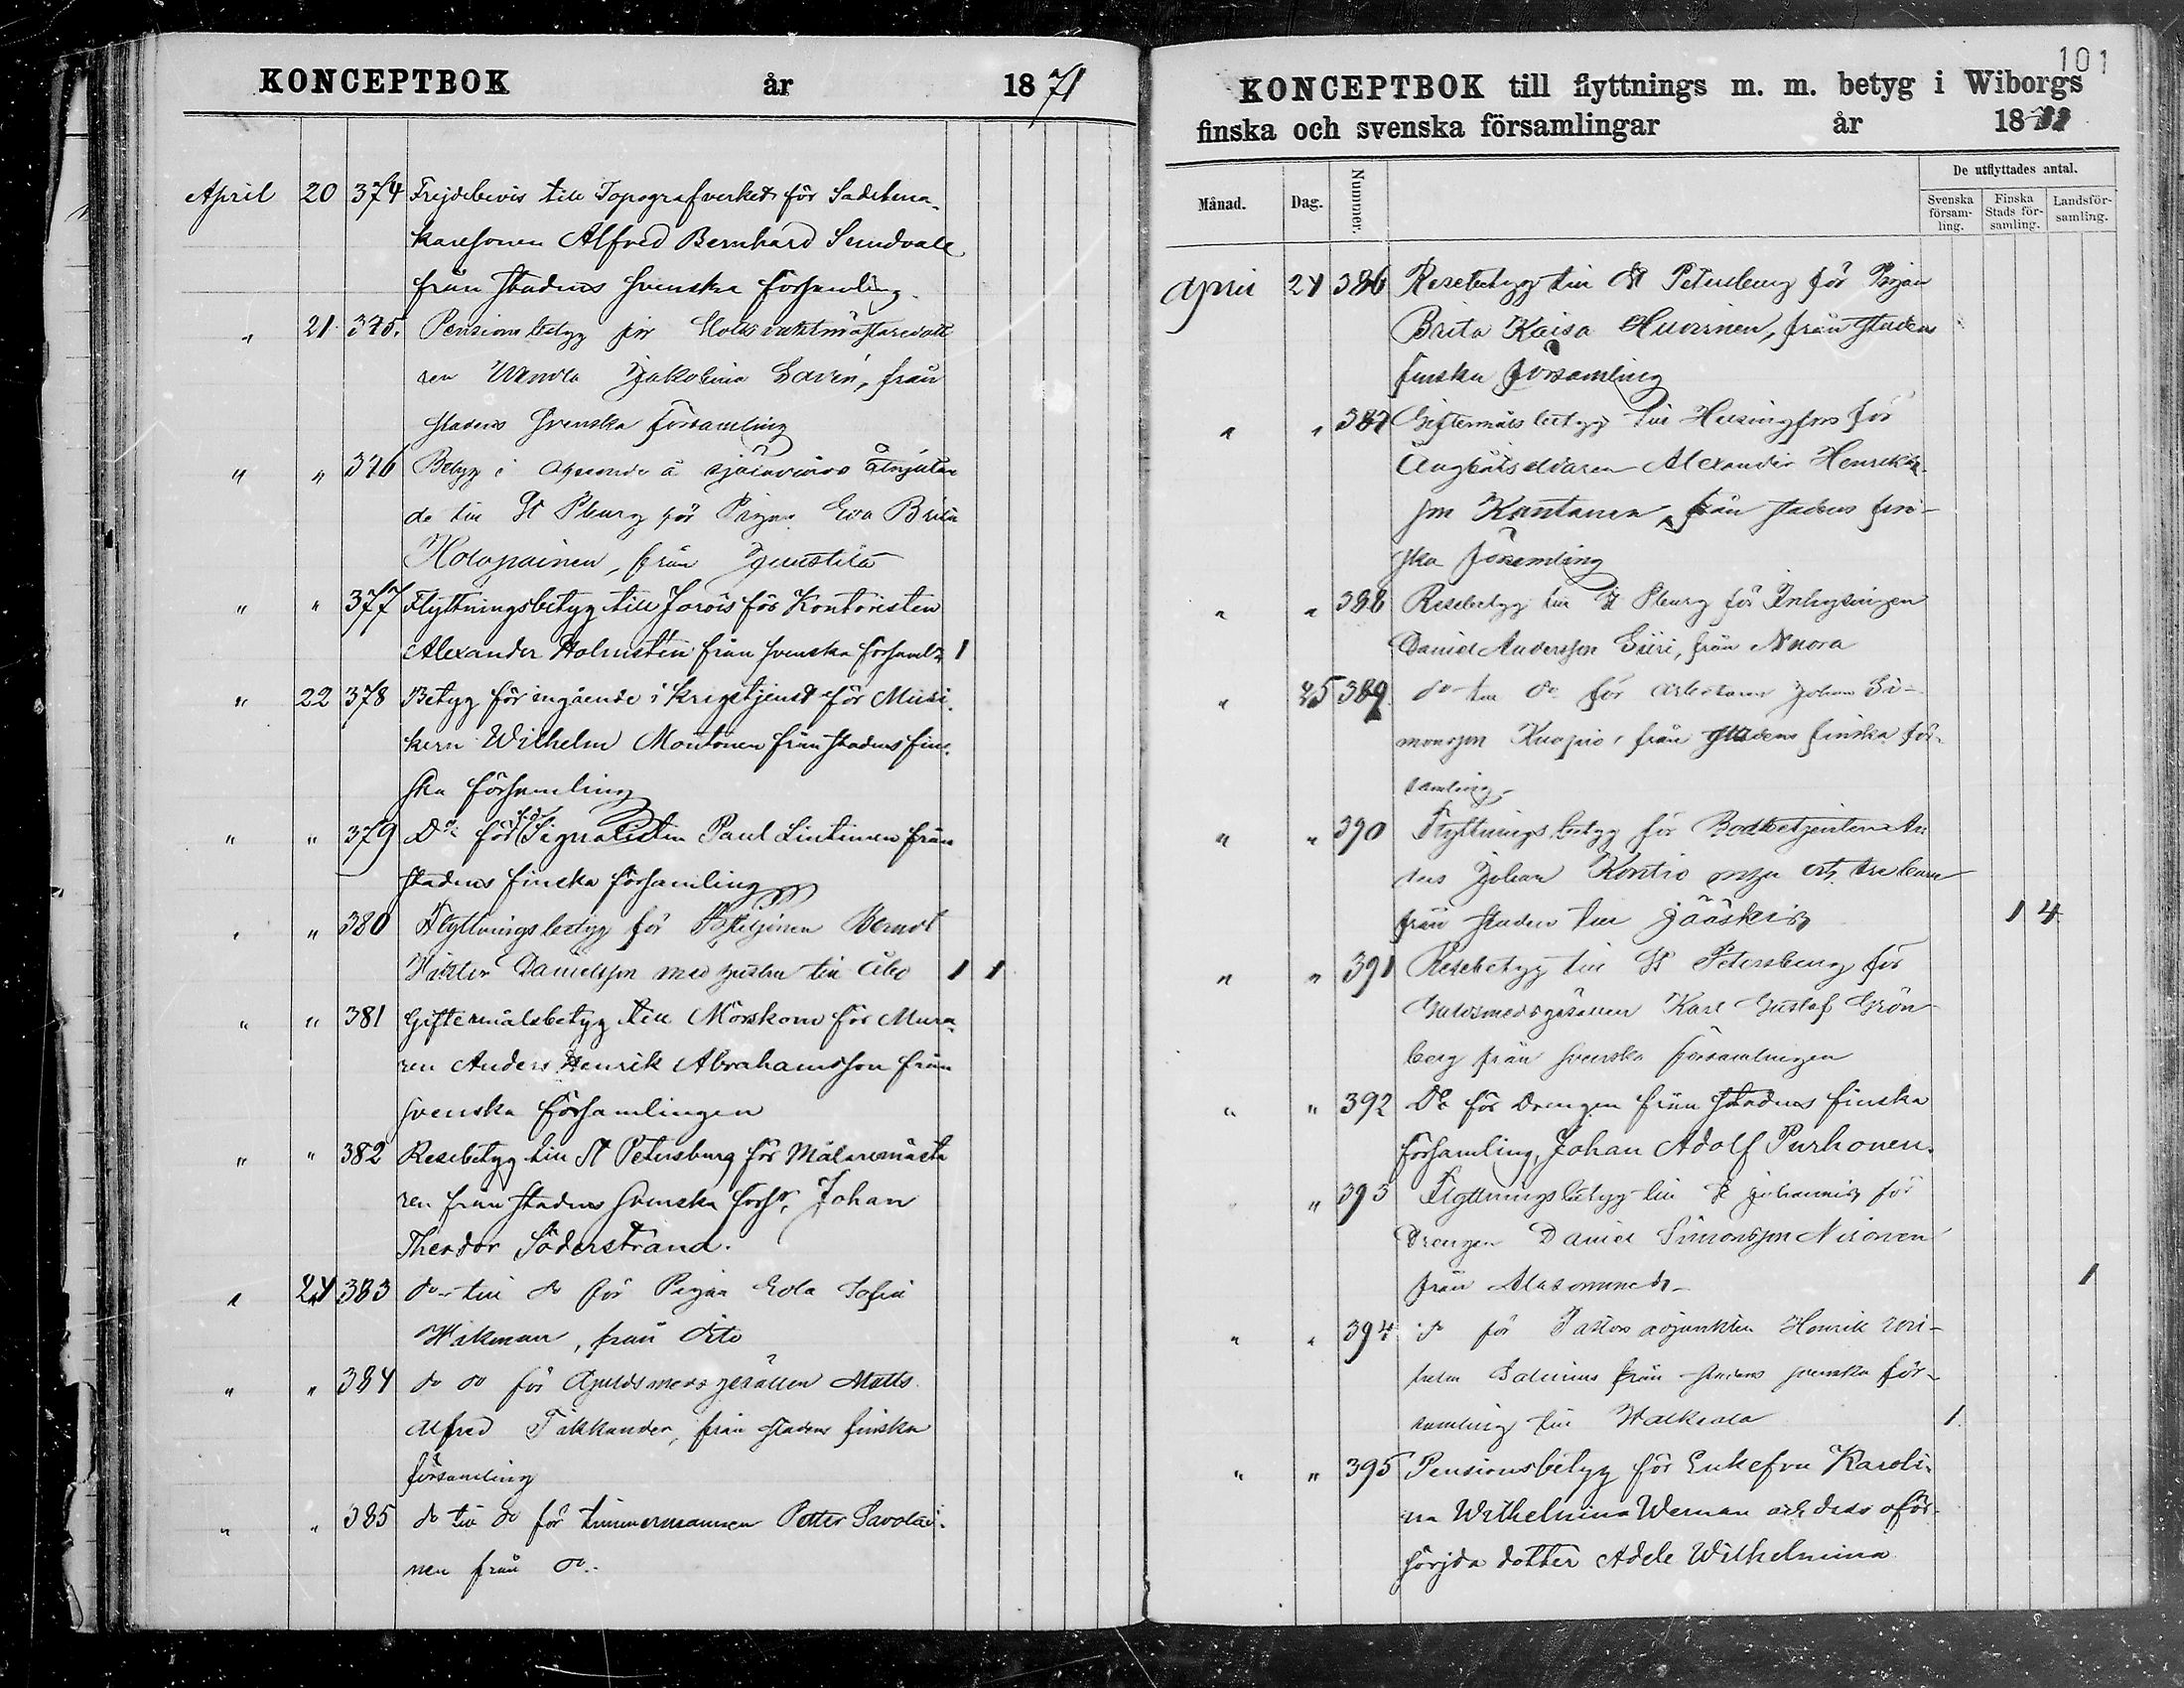 KONCEPTBOK år 1871
April 20 374 Frejdebevis till Topografverket för Sadelma-
karesonen Alfred Bernhard Sundvall
från stadens svenska församling.
" 21. 375. Pensions betyg för Slottsvaktmästaredott
ren Wendla Jakobina Savén, från
stadens svenska församling
" " 376 Betyg i afseende å själavårds åtnjutan
de till St Pburg för Pigan Eva Brita
Holopainen, från
" " 377 Flyttningsbetyg till Jorois för Kontoristen
Alexander Holmstén från svenska församl. 1
" 22 378 Betyg för ingående i krigstjenst för Musi-
kern Wilhelm Montonen från stadens fin-
ska församling
" " 379 Do för f.d. Signalisten Paul Lintinen från
stadens finska församling
" " 380 Flyttningsbetyg för Bernd
Viktor Danielsson med hustru till Åbo 1 1
" " 381 Giftermålsbetyg till Mörskom för Mura-
ren Anders Henrik Abrahamsson från
svenska församlingen
" " 382 Resebetyg till St Petersburg för Målaremästa
ren från stadens svenska förs. Johan
Theodor Söderstrand.
" 24 383 do till do för Pigan Eda Sofia
Wikman, från dito
" " 384 do do för Guldsmedsgesällen Matts
Alfred Tikkander, från stadens finska
församling
" " 385 do till do för timmermannen Petter Savolai-
nen från do.
101
KONCEPTBOK till flyttnings m. m. betyg i Wiborgs
finska och svenska församlingar år 18
Månad. Dag. Nummer. De utflyttades antal.
Svenska församling. Finska Stads församling. Landsförsamling.
April 24 386 Resebetyg till St Petersburg för Pigan
Brita Kaisa Huvinen, från stadens
finska församling
" " 387 Giftermåls betyg till Helsingfors för
Ångbåtseldaren Alexander Henriks-
son Kantanen, från stadens fin-
ska församling
" " 388 Resebetyg till St Pburg för Inhysingen
Daniel Andersson Siiri, från Nuora
" 25 389. do till do för arbetaren Johan Si-
monsson Kuopio, från stadens finska för-
samling
" " 390 Flyttnings betyg för Bodbetjenten An
ders Johan Kontio hustru och tre barn
från staden till Jääskis 1 4
" " 391 Resebetyg till St Petersburg för
Guldsmedsgesällen Karl Gustaf Grön-
berg från svenska församlingen
" " 392 Do för Drengen från stadens finska
församling, Johan Adolf Purhonen.
" " 393 Flyttningsbetyg till St Johannis för
Drengen Daniel Simonsson Nironen
från Alasommee 1
" " 394 do för Pastors adjunkten Henrik Wil-
helm Salenius från stadens svenska för-
samling till Walkeala 1.
" " 395 Pensionsbetyg för Enkefru Karoli-
na Wilhelmina Weman och dess oför-
sörjda dotter Adele Wilhelmina